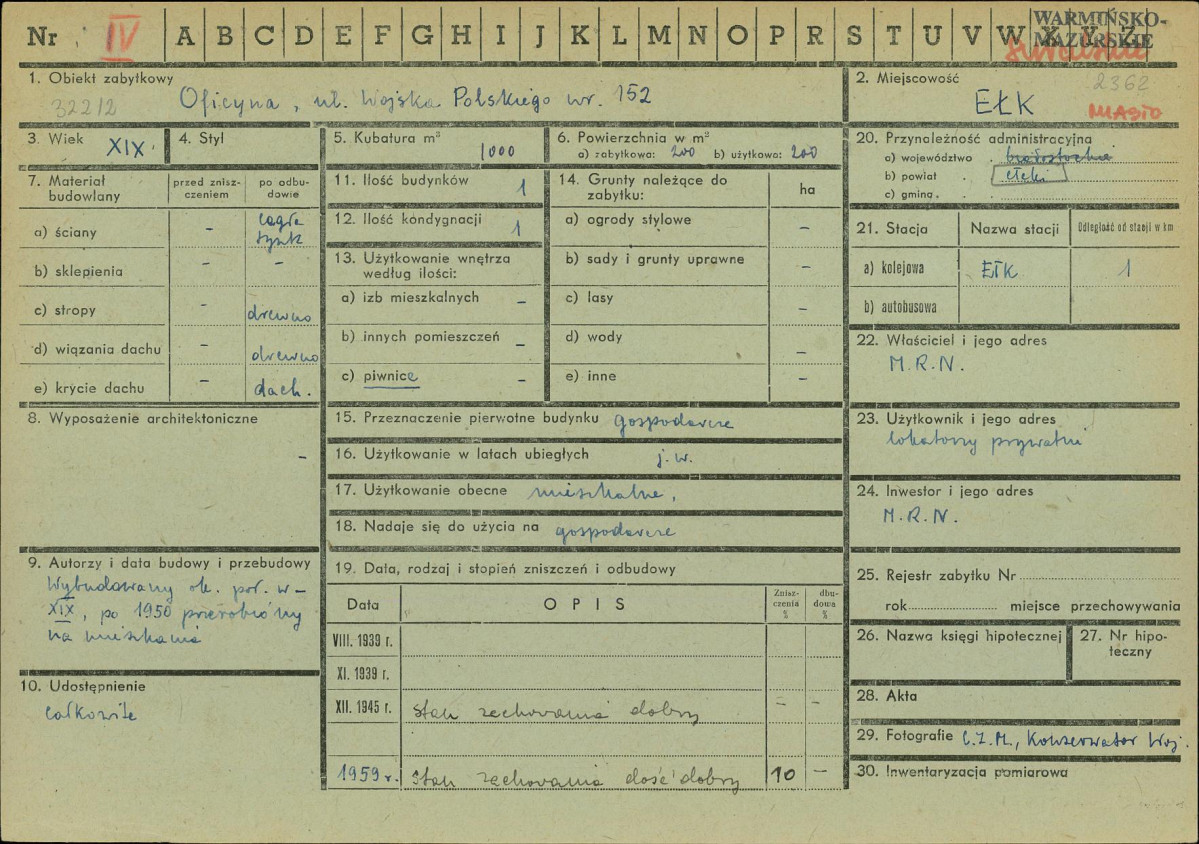 Nr IV A B C D E F G H I J K L M N O P R S T U V W X Y Z
WARMIŃSKO-
MAZURSKIE
1. Obiekt zabytkowy
322/2 Oficyna, ul. Wojska Polskiego nr. 152
2. Miejscowość
2362
EŁK MIASTO
3. Wiek XIX
4. Styl
5. Kubatura m³
1000
6. Powierzchnia w m²
a) zabytkowa: 200 b) użytkowa: 200
20. Przynależność administracyjna
a) województwo . białostockie
b) powiat . ełcki
c) gmina .
7. Materiał budowlany
przed znisz-
czeniem
po odbu-
dowie
a) ściany - cegła
tynk
b) sklepienia - -
c) stropy - drewno
d) wiązania dachu - drewno
e) krycie dachu - dach.
11. Ilość budynków 1
12. Ilość kondygnacji 1
13. Użytkowanie wnętrza
według ilości:
a) izb mieszkalnych -
b) innych pomieszczeń -
c) piwnice -
14. Grunty należące do
zabytku:
ha
a) ogrody stylowe -
b) sady i grunty uprawne -
c) lasy -
d) wody -
e) inne -
21. Stacja Nazwa stacji Odległość od stacji w km
a) kolejowa EŁK 1
b) autobusowa
22. Właściciel i jego adres
M.R.N.
8. Wyposażenie architektoniczne
-
15. Przeznaczenie pierwotne budynku gospodarcze
16. Użytkowanie w latach ubiegłych j.w.
17. Użytkowanie obecne mieszkalne,
18. Nadaje się do użycia na gospodarcze
23. Użytkownik i jego adres
lokatorzy prywatni
24. Inwestor i jego adres
M.R.N.
9. Autorzy i data budowy i przebudowy
Wybudowany ok. poł. w-
XIX, po 1950 przerobiony
na mieszkania
10. Udostępnienie
całkowite
19. Data, rodzaj i stopień zniszczeń i odbudowy
Data OPIS Znisz-
czenia
% dbu-
dowa
%
VIII. 1939 r.
XI. 1939 r.
XII. 1945 r. stan zachowania dobry - -
1959 r. stan zachowania dość dobry 10 -
25. Rejestr zabytku Nr
rok miejsce przechowywania
26. Nazwa księgi hipotecznej
27. Nr hipo-
teczny
28. Akta
29. Fotografie C.Z.M., Konserwator Woj.
30. Inwentaryzacja pomiarowa